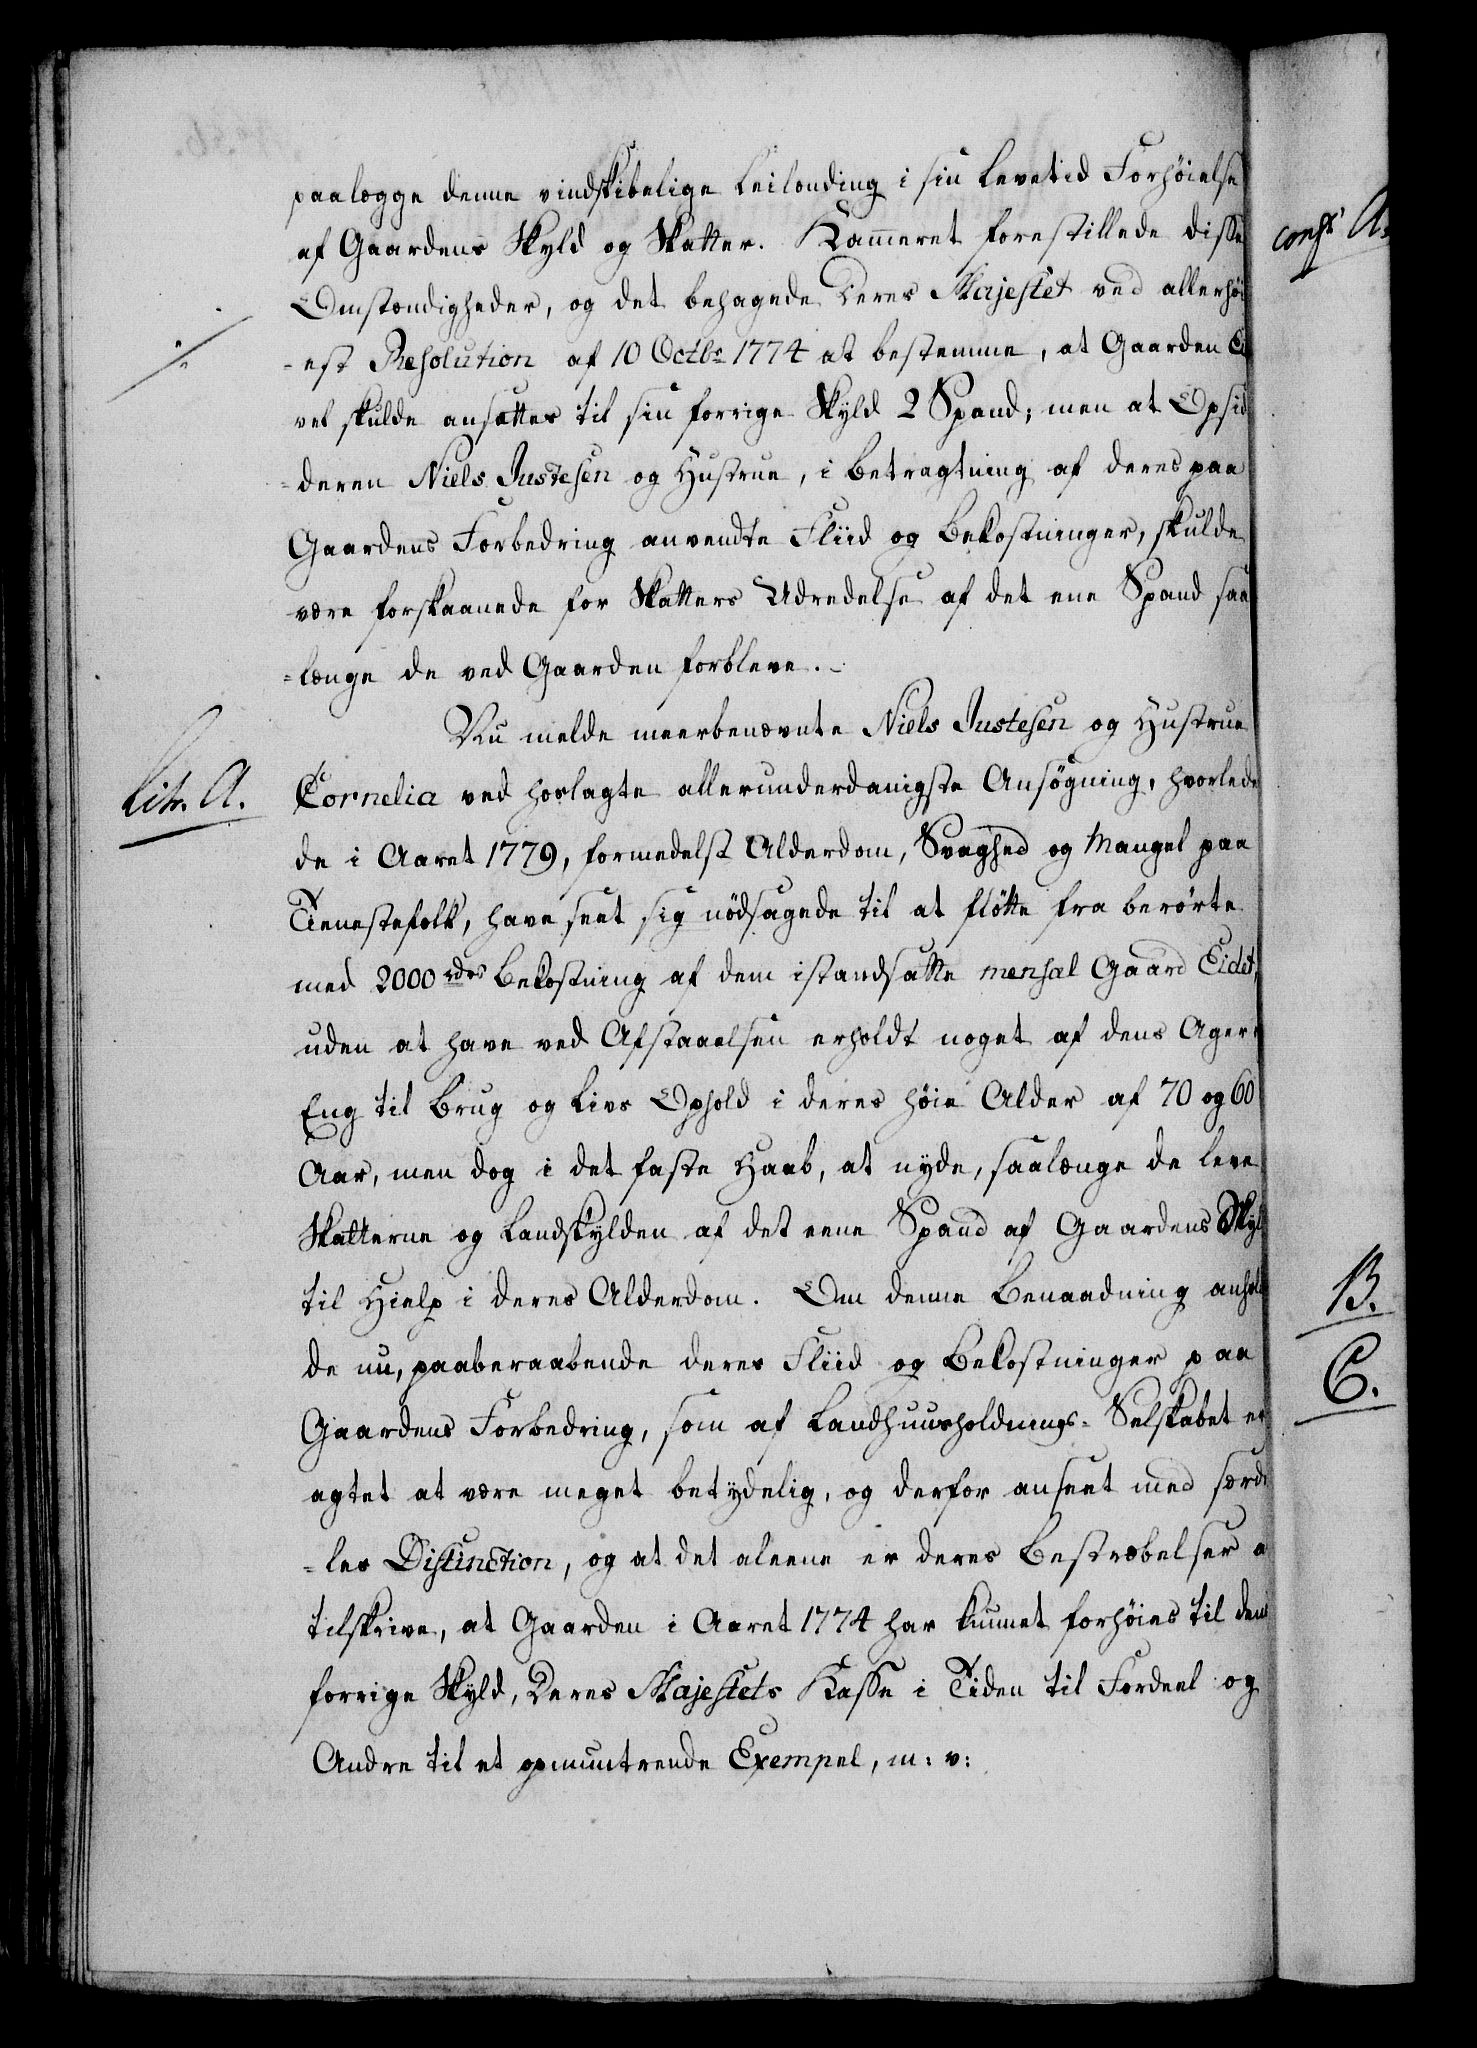 paalægge denne vindskibelige Leilænding i sin Levetid Forhöielse
af Gaardens Skyld og Skatter. Kam̅eret forestillede disse
Omstændigheder, og det behagede Deres Majestet ved allerhöi
-est Resolution af 10 Octbr 1774 at bestemme, at Gaarden
vel skulde ansættes til sin forrige Skyld 2 Spand; men at Opsid
=deren Niels Justesen og Hustrue, i Betragtning af deres paa
Gaardens Forbedring anvendte Fliid og Bekostninger, skulde
være forskaanede for Skatters Udredelse af det ene Spand saa
=længe de ved Gaarden forbleve.-
Nu melde meerbenævnte Niels Justesen og Hustrue
Litr. A.
Cornelia ved hoslagte allerunderdanigste Ansögning, hvorlede
de i Aaret 1779, formedelst Alderdom, Svaghed og Mangel paa
Tienestefolk, have seet sig nödsagede til at flötte fra berörte
med 2000 rdrs Bekostning af dem istandsatte mensal Gaard Eidet,
uden at have ved Afstaaelsen erholdt noget af dens Ager
Eng til Brug og Livs Ophold i deres höie Alder af 70 og 60
Aar, men dog i det faste Haab, at nyde, saalænge de leve
Skatterne og Landskylden af det eene Spand af Gaardens Skyl
til Hielp i deres Alderdom. Om denne Benaadning anhol
de nu, paaberaabende deres Fliid og Bekostninger paa
Gaardens Forbedring, som af Landhuusholdnings-Selskabet er
agtet at være meget betydelig, og derfor anseet med særde
=les Distinction, og at det aleene er deres Bestræbelser a
tilskrive, at Gaarden i Aaret 1774 har kunnet forhöies til dens
forrige Skyld, Deres Majestets Kasse i Tiden til Fordeel og
Andre til et opmuntrende Exempel, m: v:
confr A.
B.
C.